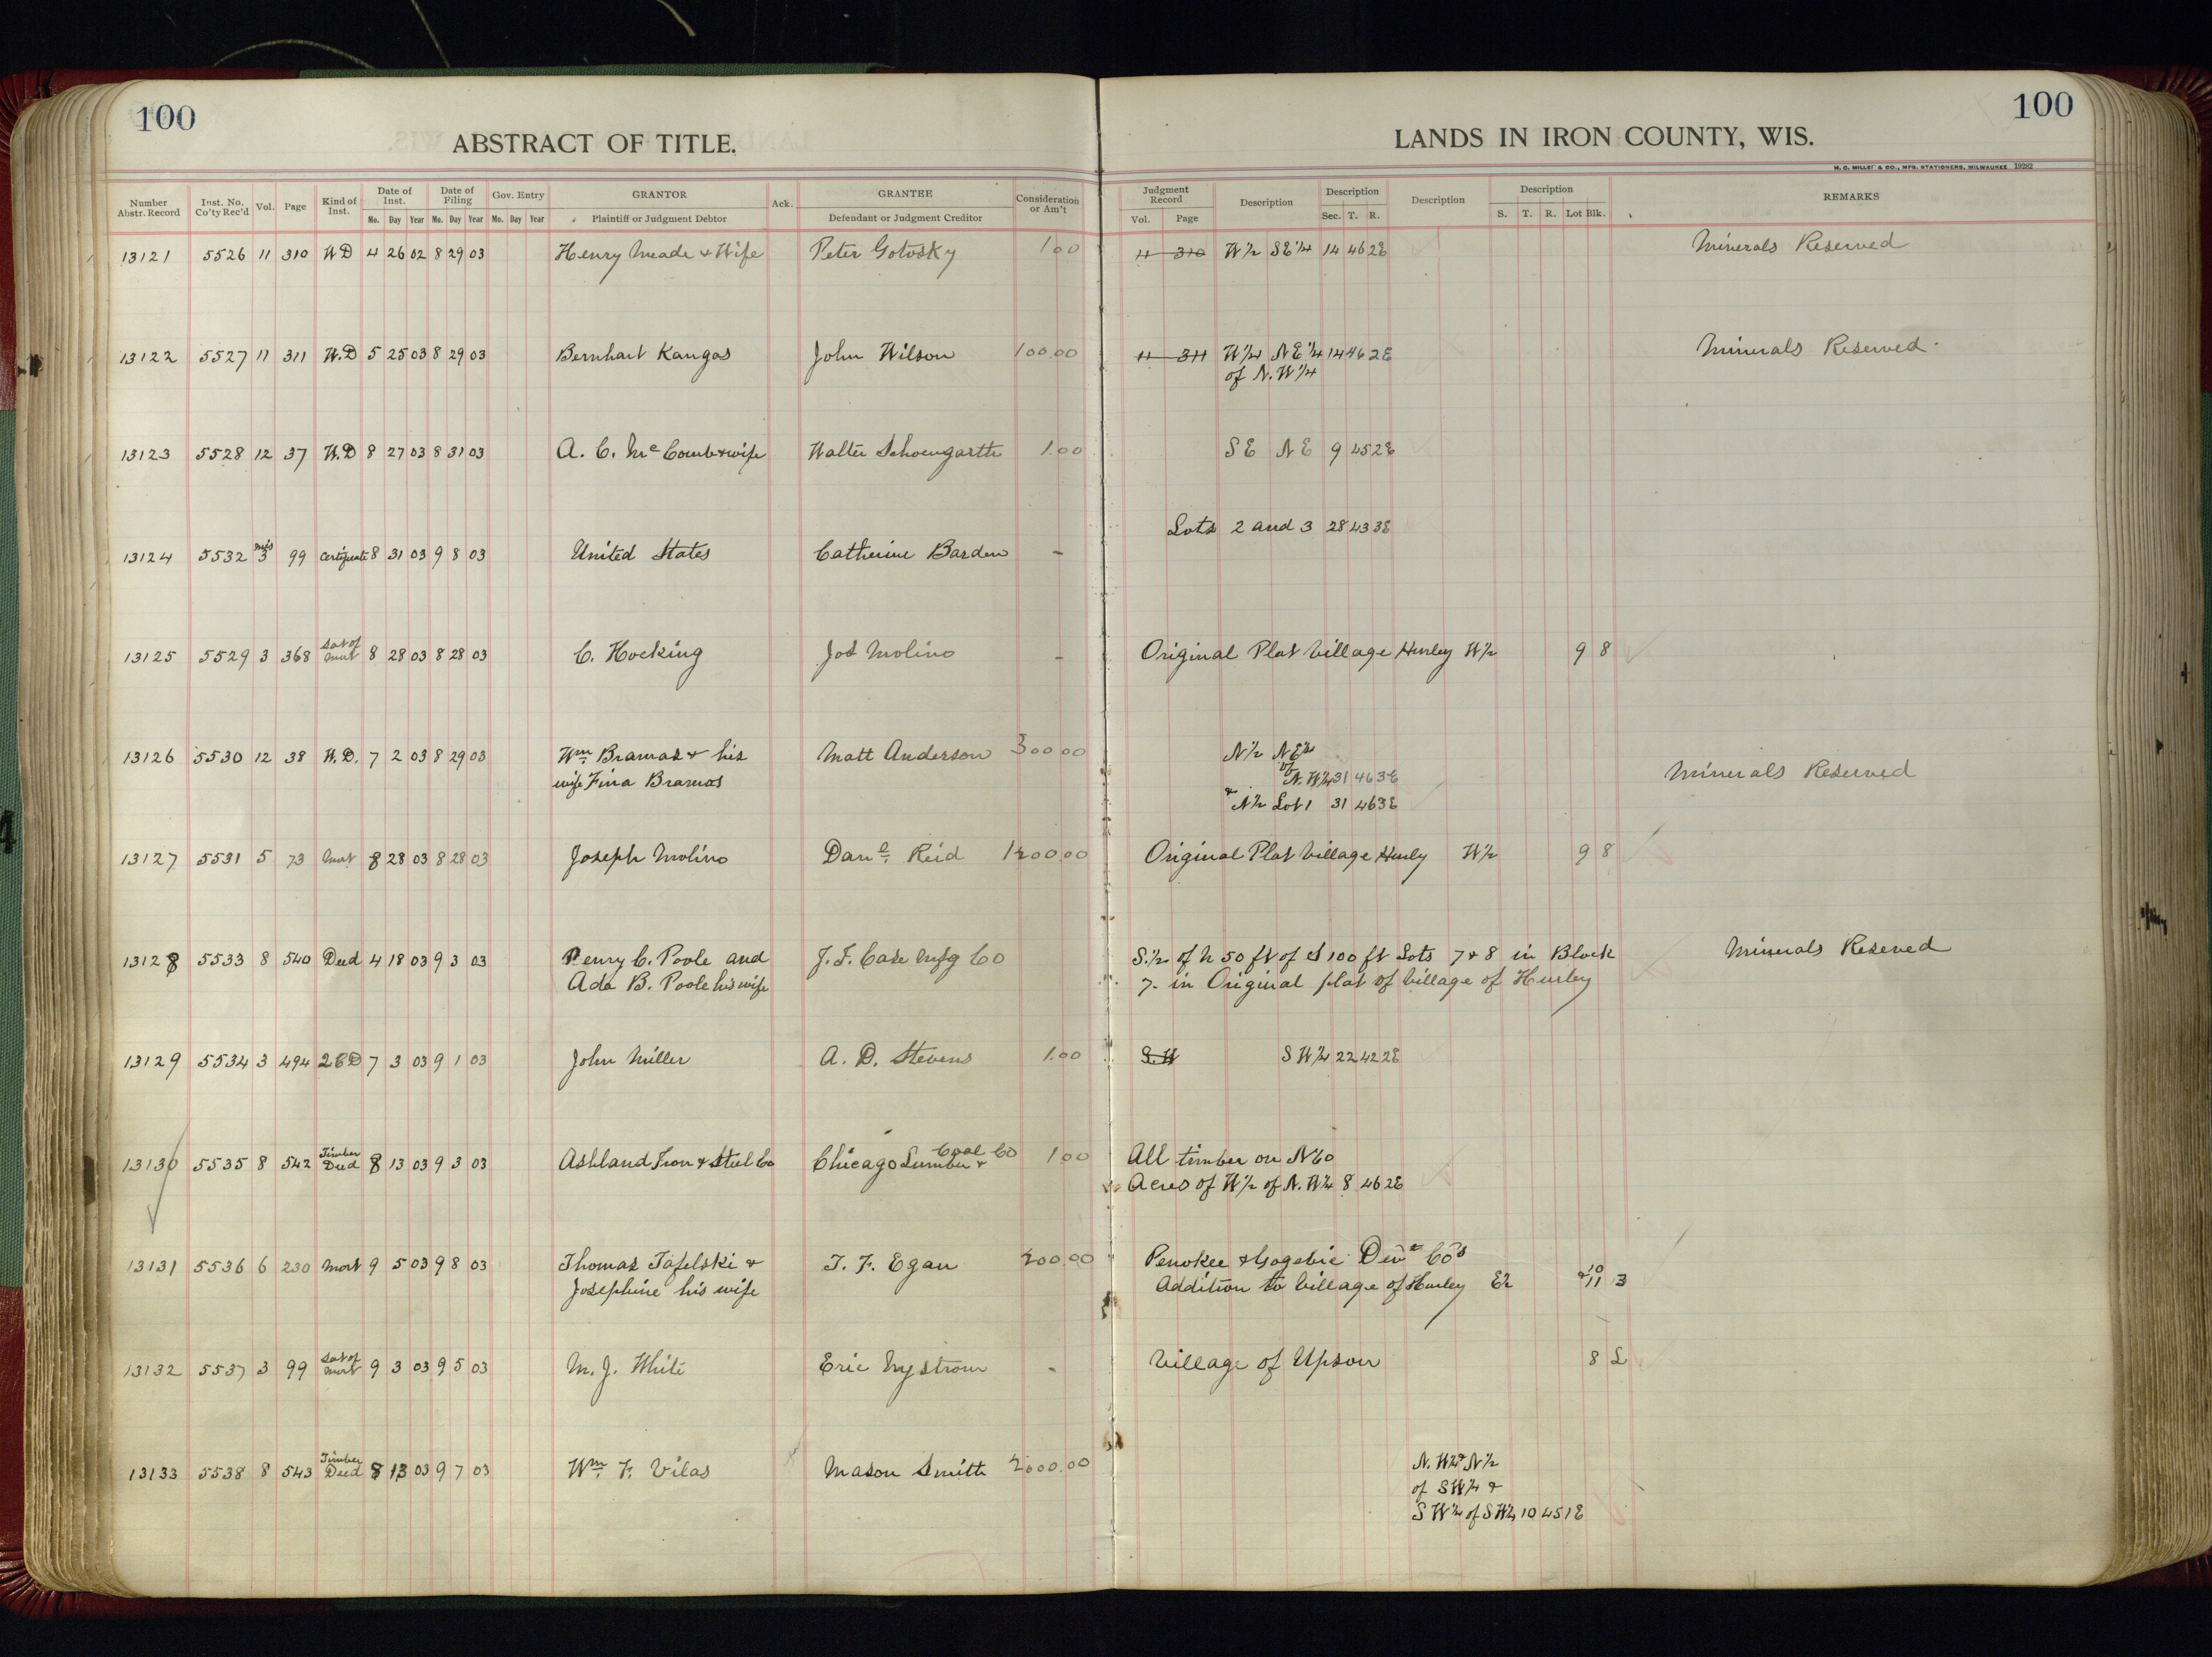 100
100
ABSTRACT OF TITLE.
LANDS IN IRON COUNTY, WIS.
H. C. MILLER & CO., MFG. STATIONERS, MILWAUKEE 19282
Number Abstr. Record Inst. No. Co'ty Rec'd Vol. Page Kind of Inst. Date of Inst. Mo. Day Year Date of Filing Mo. Day Year Gov. Entry Mo. Day Year GRANTOR Plaintiff or Judgment Debtor Ack. GRANTEE Defendant or Judgment Creditor Consideration or Am't
Judgment Record Vol. Page Description Description Sec. T. R. Description Description S. T. R. Lot Blk. REMARKS
13121 5526 11 310 W D 4 26 02 8 29 03 Henry Meade & Wife Peter Gotosky 1 00 11 310 W½ SE¼ 14 46 2E Minerals Reserved
13122 5527 11 311 W.D 5 25 03 8 29 03 Bernhart Kangas John Wilson 100.00 11 311 W¼ NE¼ 14 46 2E Minerals Reserved
of N.W¼
13123 5528 12 37 W.D 8 27 03 8 31 03 A. C. McComb & wife Walter Schoengarth 1.00 SE NE 9 45 2E
Lots 2 and 3 28 43 3E
13124 5532 mis 3 99 Certificate 8 31 03 9 8 03 United States Catherine Barden -
13125 5529 3 368 Sat of Mort 8 28 03 8 28 03 C. Hocking Jos Molino - Original Plat Village Hurley W½ 9 8
13126 5530 12 38 W.D. 7 2 03 8 29 03 Wm Bramas & his Matt Anderson 300 00 N½ NE¼
wife Fina Bramas of N.W¼ 31 46 3E Minerals Reserved
& N½ Lot 1 31 46 3E
13127 5531 5 73 Mort 8 28 03 8 28 03 Joseph Molino Danl Reid 1200.00 Original Plat Village Hurly W½ 9 8
13128 5533 8 540 Deed 4 18 03 9 3 03 Penry C. Poole and J. F. Case Mfg Co S.½ of N 50 ft of S 100 ft Lots 7 & 8 in Block Minerals Reseved
Ada B. Poole his wife 7- in Original plat of Village of Hurley
13129 5534 3 494 2CD 7 3 03 9 1 03 John Miller A. D. Stevens 1.00 S.W SW¼ 22 42 2E
13130 5535 8 542 Timber Deed 8 13 03 9 3 03 Ashland Iron & Steel Co Chicago Lumber & Coal Co 1.00 All timber on N60
Acres of W½ of N.W¼ 8 46 2E
13131 5536 6 230 Mort 9 5 03 9 8 03 Thomas Tafelski & T. F. Egan 200.00 Penokee & Gogebic Devt Co's
Josephine his wife Addition to Village of Hurley E½ 10 & 11 3
13132 5537 3 99 Sat of Mort 9 3 03 9 5 03 M. J. White Eric Nystrom - Village of Upson 8 L
13133 5538 8 543 Timber Deed 8 13 03 9 7 03 Wm F. Vilas Mason Smith 2600.00 N.W¼ & N½
of SW¼ &
SW¼ of SW¼ 10 45 1E